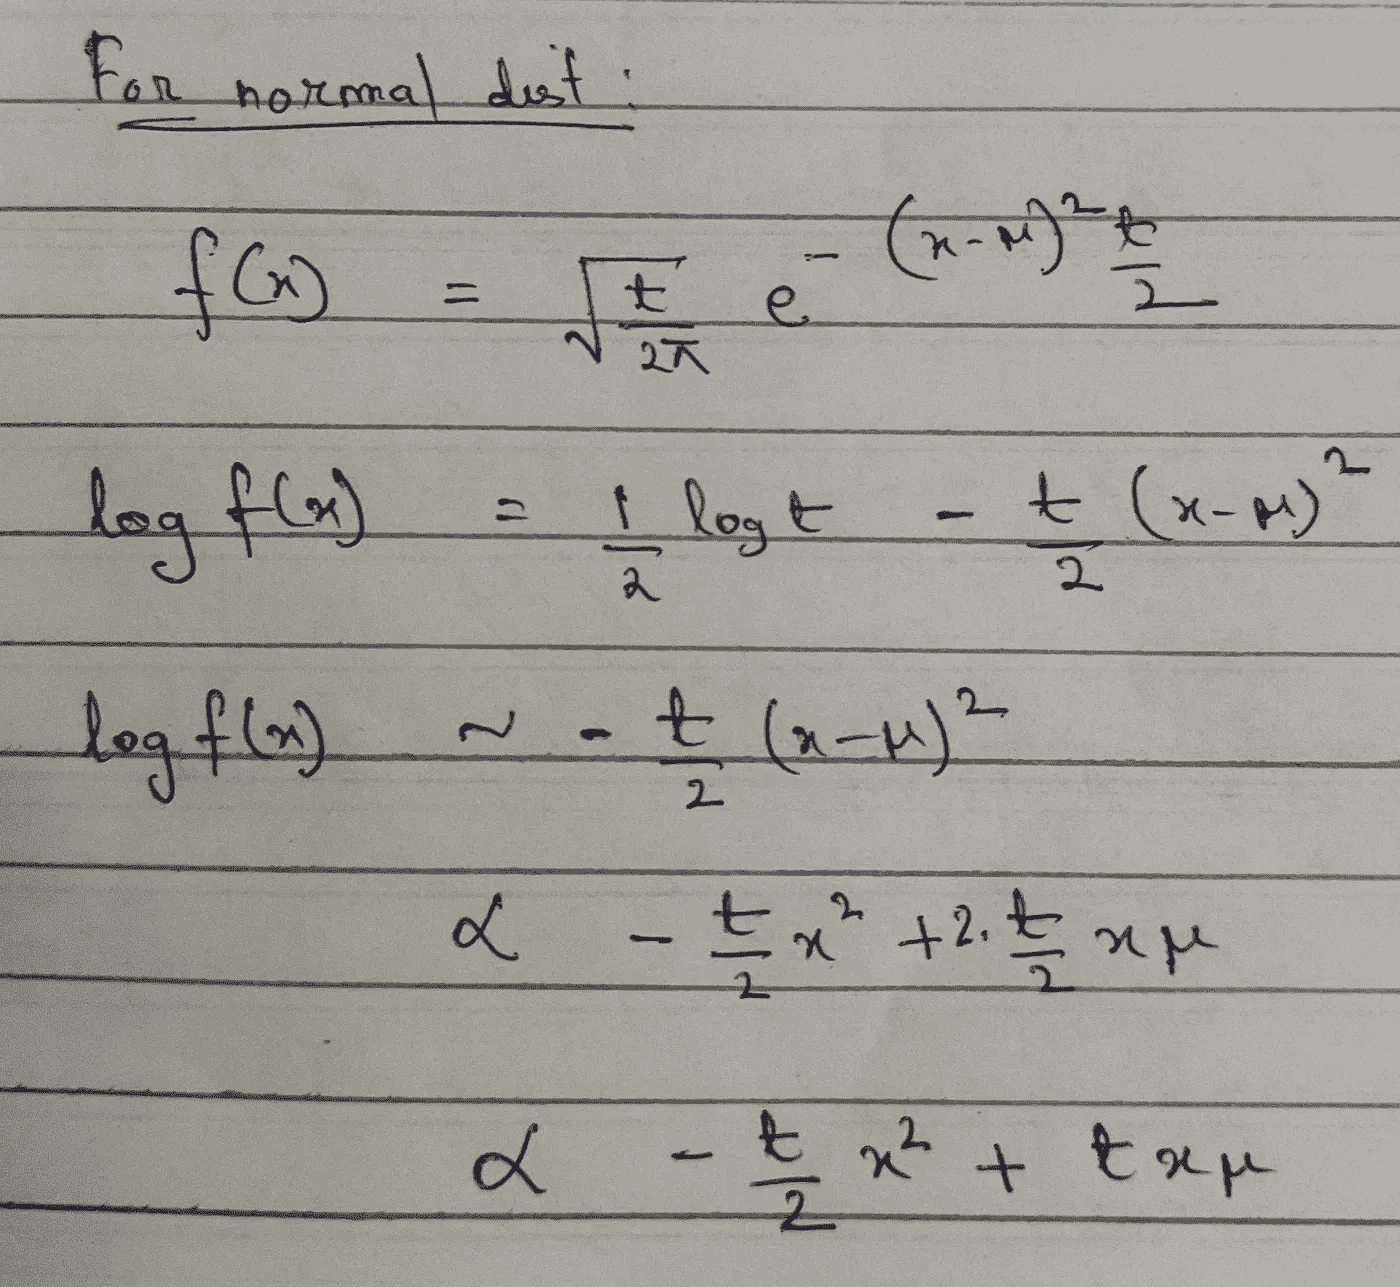 For normal dist :
f(x) = √(t/2π) e^(-(x-μ)² t/2)
log f(x) = 1/2 log t - t/2 (x-μ)²
log f(x) ~ - t/2 (x-μ)²
∝ - t/2 x² + 2. t/2 x μ
∝ - t/2 x² + t x μ